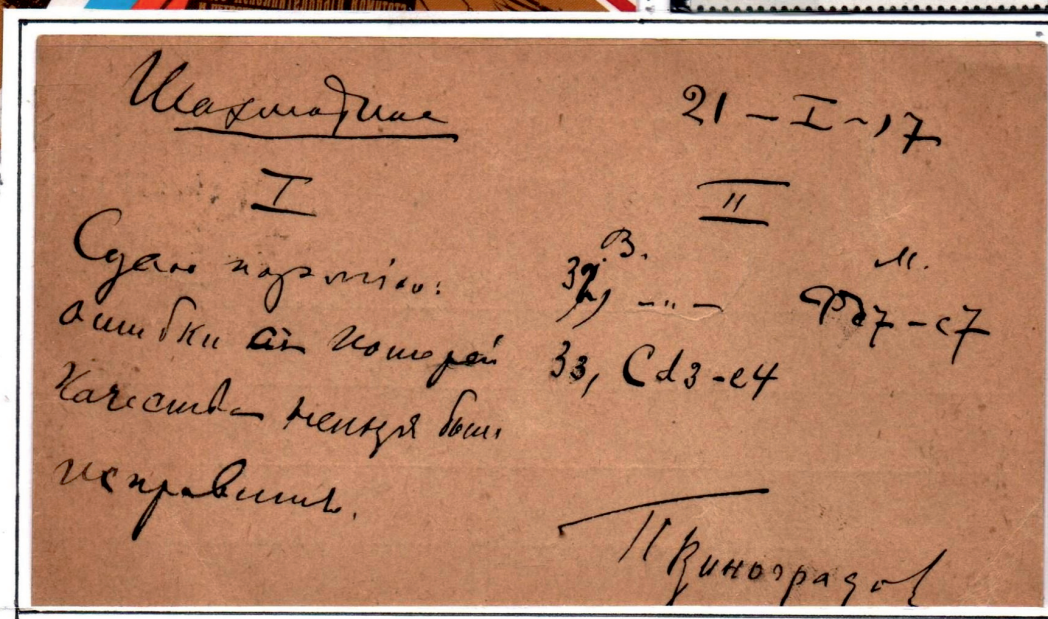 Шахматное
21 – I – 17
I
Сдаю партію:
ошибки съ потерей
качества нельзя было
исправить.
II
В. М.
32) –„– Фd7–c7
33, Cd3–e4
П Виноградов